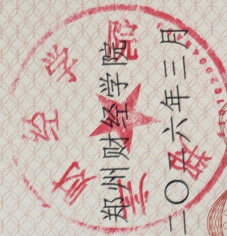 郑州财经学院
二〇一六年三月